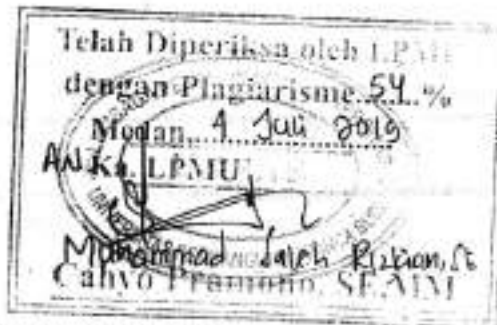 Telah Diperiksa oleh LPMU
dengan Plagiarisme 54 %
Medan, 4 Juli 2019
AN Ka. LPMU
Muhammad Saleh
Cahyo Pramono, SE,MM